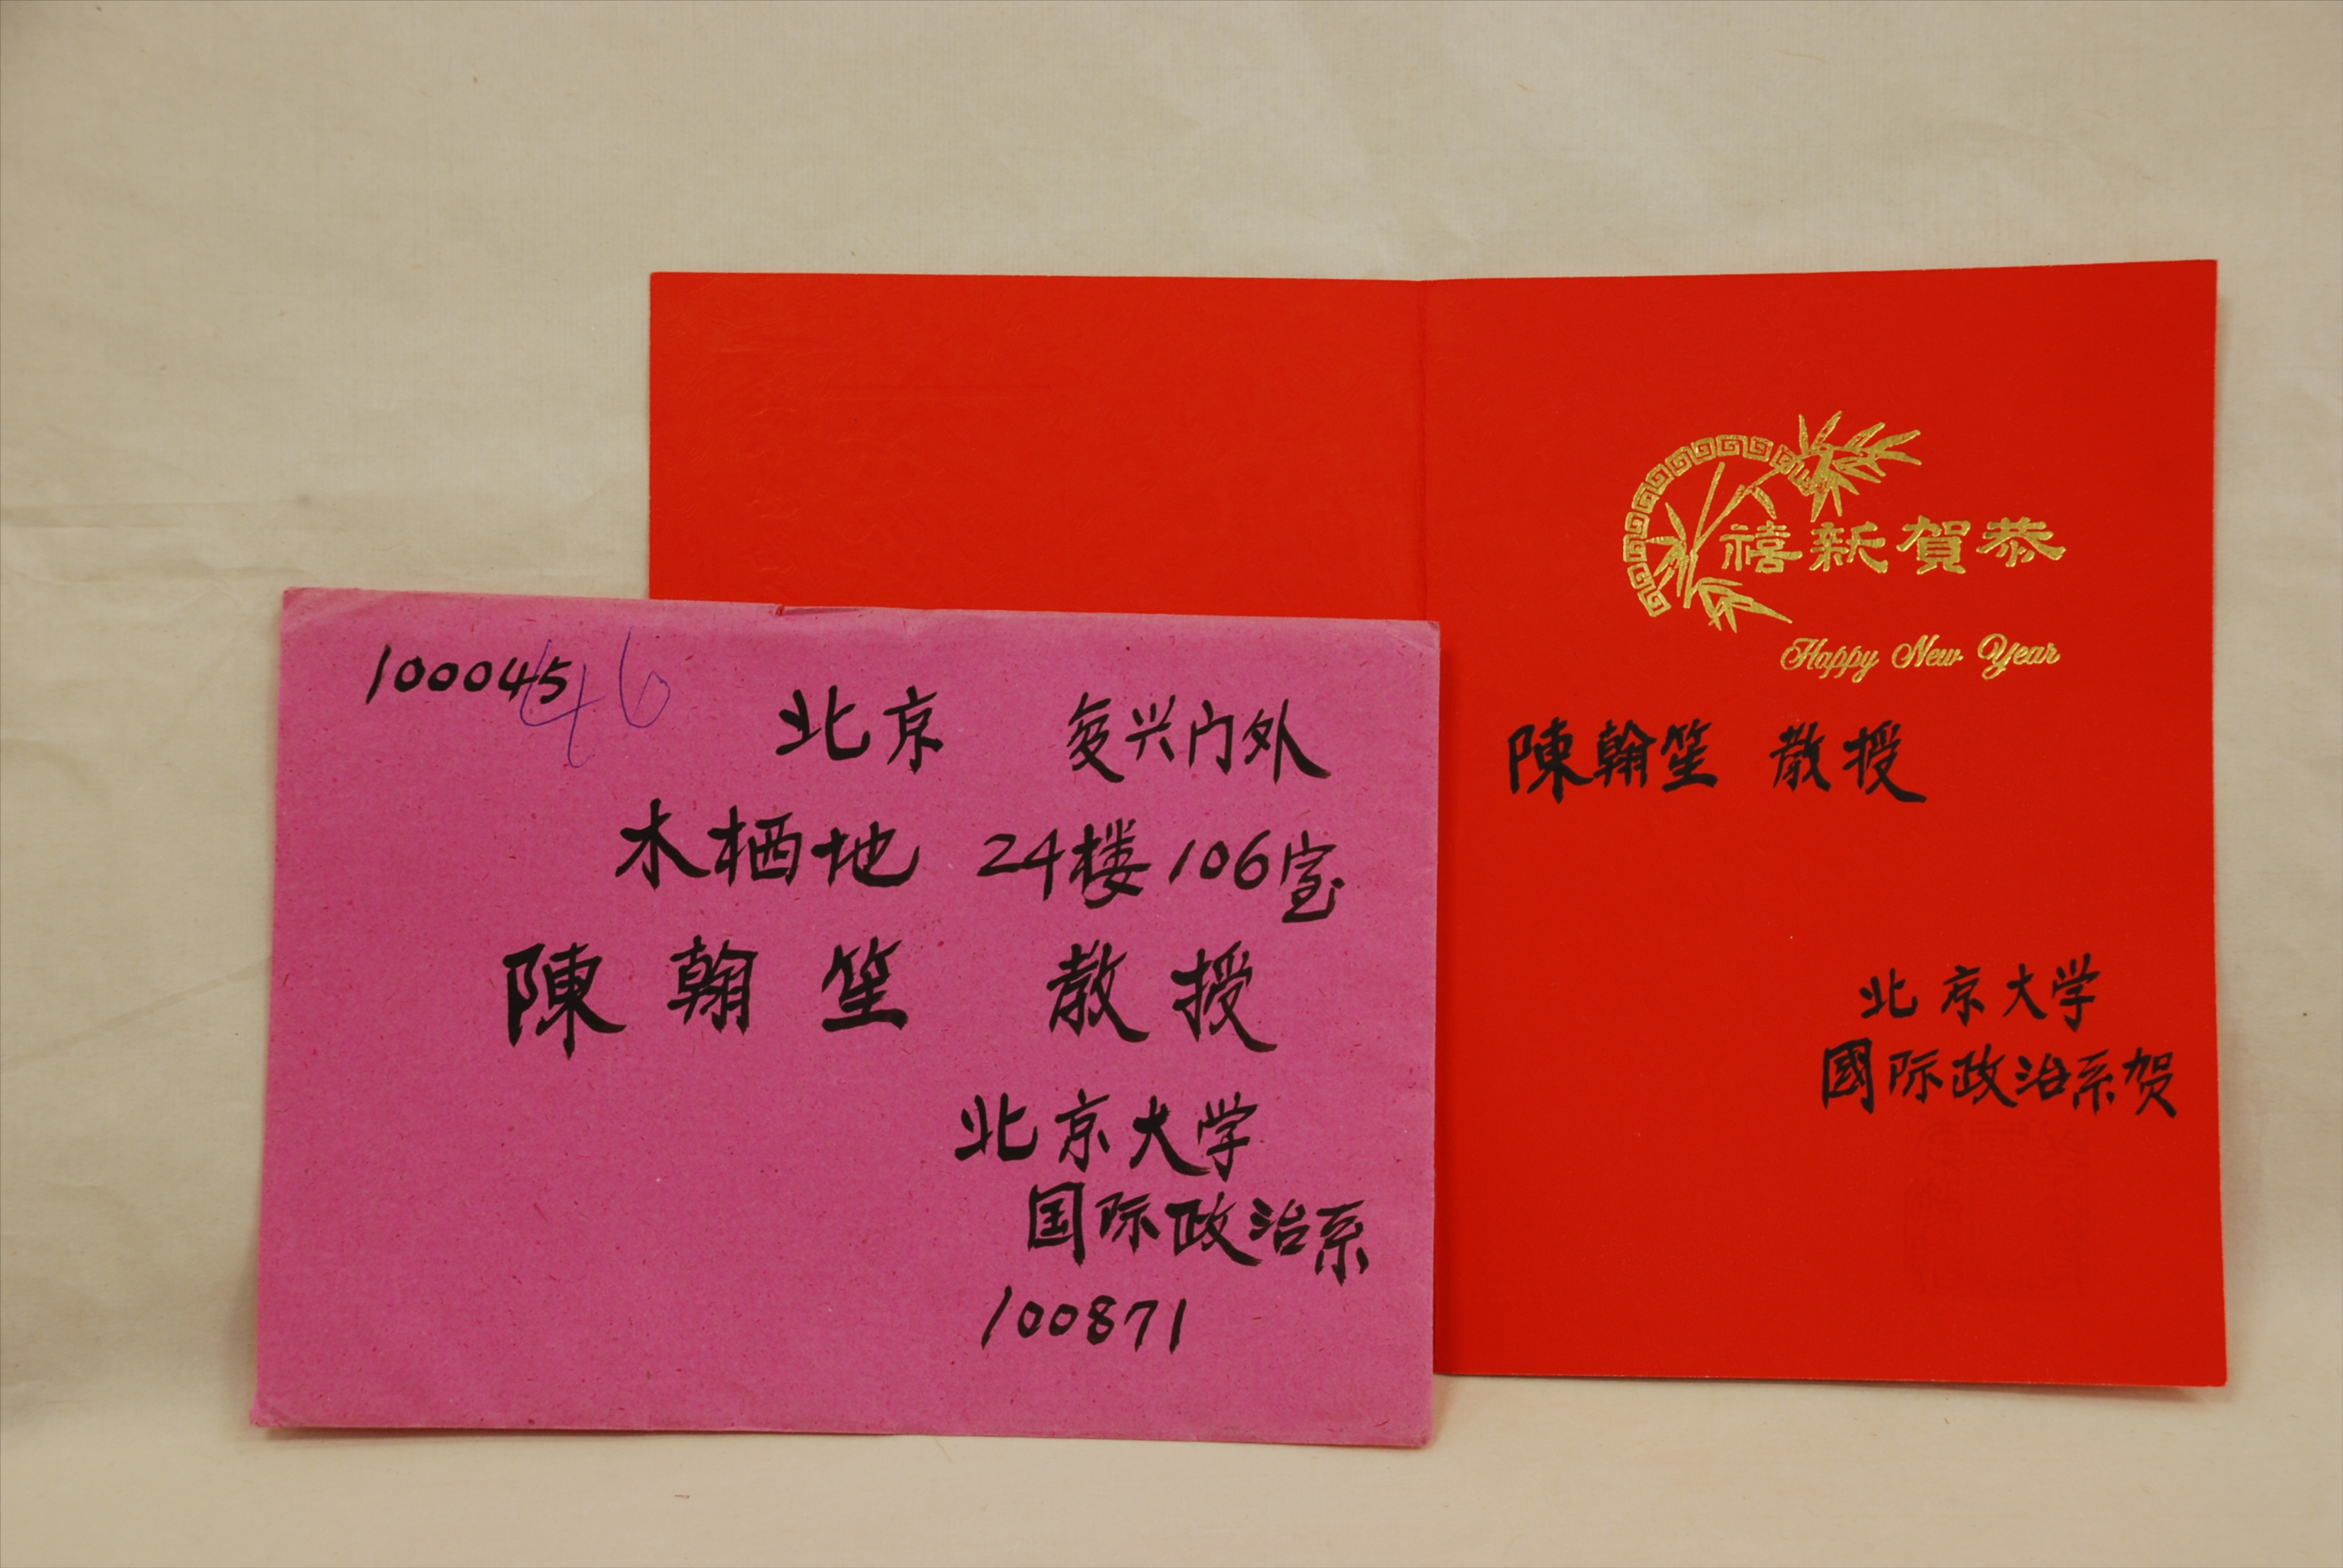 100045
46
北京 复兴门外
木栖地 24楼106室
陳翰笙 教授
北京大学
国际政治系
100871
禧新賀恭
Happy New Year
陳翰笙 教授
北京大学
國际政治系贺